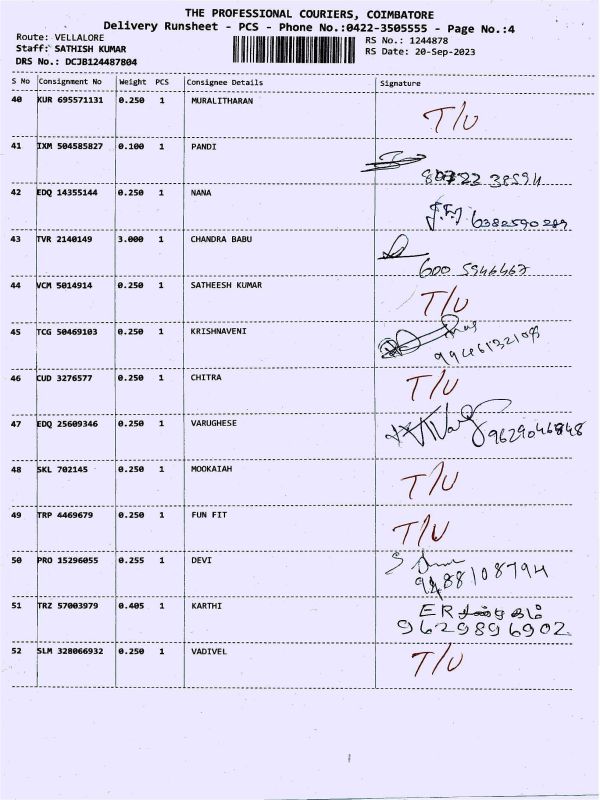 THE PROFESSIONAL COURIERS, COIMBATORE
Delivery Runsheet - PCS - Phone No.:0422-3505555 - Page No.:4
Route: VELLALORE RS No.: 1244878
Staff: SATHISH KUMAR RS Date: 20-Sep-2023
DRS No.: DCJB124487804
S No Consignment No Weight PCS Consignee Details Signature
40 KUR 695571131 0.250 1 MURALITHARAN T/U
41 IXM 504585827 0.100 1 PANDI
42 EDQ 14355144 0.250 1 NANA 6382590289
43 TVR 2140149 3.000 1 CHANDRA BABU 600 5946467
44 VCM 5014914 0.250 1 SATHEESH KUMAR T/U
45 TCG 50469103 0.250 1 KRISHNAVENI
46 CUD 3276577 0.250 1 CHITRA T/U
47 EDQ 25609346 0.250 1 VARUGHESE 9629046848
48 SKL 702145 0.250 1 MOOKAIAH T/U
49 TRP 4469679 0.250 1 FUN FIT T/U
50 PRO 15296055 0.255 1 DEVI
51 TRZ 57003979 0.405 1 KARTHI ER
9629896902
52 SLM 328066932 0.250 1 VADIVEL T/U